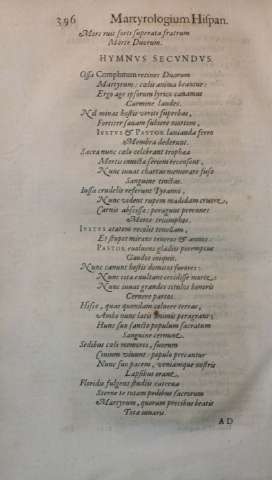 396 Martyrologium Hispan.
Mors ruit forti superata fratrum
Morte Duorum.
HYMNVS SECVNDVS.
Ossa Complutum retinet Duorum
Martyrum: cæli anima beantur:
Ergo age ipsorum lyrico canamus
Carmine laudes.
Nil minas hostis veriti superbas,
Fortiter sæuam subiere mortem,
IVSTVS & PASTOR lanianda ferro
Membra dederunt.
Sacra nunc cæli celebrant trophæa
Mortis inuictæ seriem recensent,
Nunc iuuat chartas memorare fuso
Sanguine tinctas.
Iussa crudelis referunt Tyranni,
Nunc vident rupem madidam cruore,
Carnis abscissæ: peragunt perennes
Morte triumphos.
IVSTVS ætatem recolit tenellam,
Et stupet mirans teneros &
PASTOR euulsum gladijs peremptus
Gaudet
Nunc canunt hostis domitos furores:
Nunc ita exultant cecidisse
Nunc iuuat grandes titulos honoris
Cernere partos.
Hisce, quas quondam coluere terras,
Ambo nunc lætis animis peragrant:
Hunc suo sancto populum sacratum
Sanguine cernunt.
Sedibus cæli memores, suorum
Ciuium viuunt: populo precantur
Nunc suo pacem, veniamque nostris
Lapsibus orant.
Florida fulgent studijs caterua
Sterne te totam pedibus sacrorum
Martyrum, quorum precibus beatis
Tota
AD